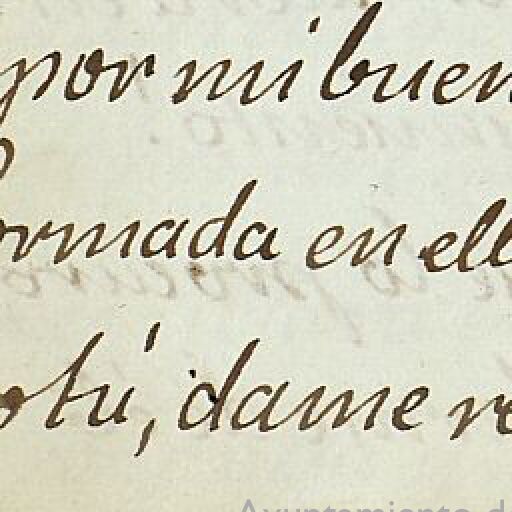 por mi buen
ormada en ell
otú, dame re
Ayuntamiento d